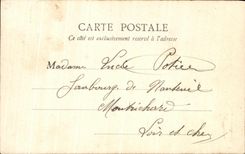 CARTE POSTALE
Ce côté est exclusivement réservé à l'adresse
Madame Potier
Faubourg de Nanteuil
Montrichard
Loir et Cher